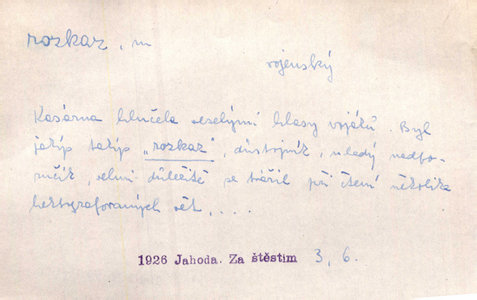 rozkaz, m
vojenský
Kasárna hlučela veselými hlasy vojáků. Byl
jakýs takýs „rozkaz", důstojník, mladý nadpo-
ručík, velmi důležitě se tvářil při čtení několika
hektografovaných vět, ...
1926 Jahoda. Za štěstím 3, 6.